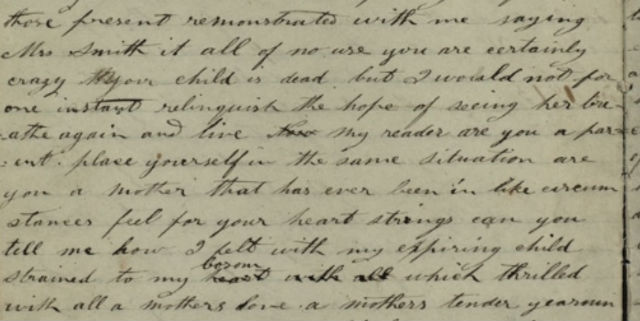 those present remonstrated with me saying
Mrs Smith it all of no use you are certainly
crazy your child is dead but I would not for
one instant relinquish the hope of seeing her bre-
-athe again and live my reader are you a par-
-ent. place yourself in the same situation are
you a mother that has ever been in like circum
stances feel for your heart strings can you
tell me how I felt with my expiring child
bosom
strained to my heart with all which thrilled
with all a mothers love a mothers tender yearnin